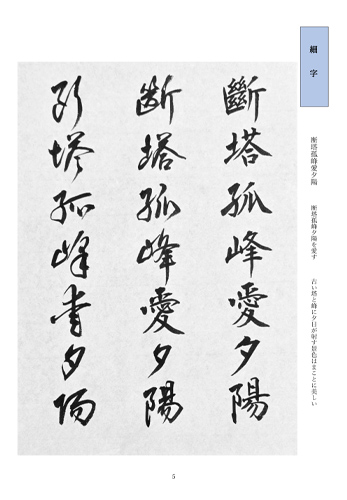 細字
断塔孤峰愛夕陽　断塔孤峰夕陽を愛す　古い塔と峰に夕日が射す景色はまことに美しい
斷塔孤峰愛夕陽
断塔孤峰愛夕陽
断塔孤峰愛夕陽
5